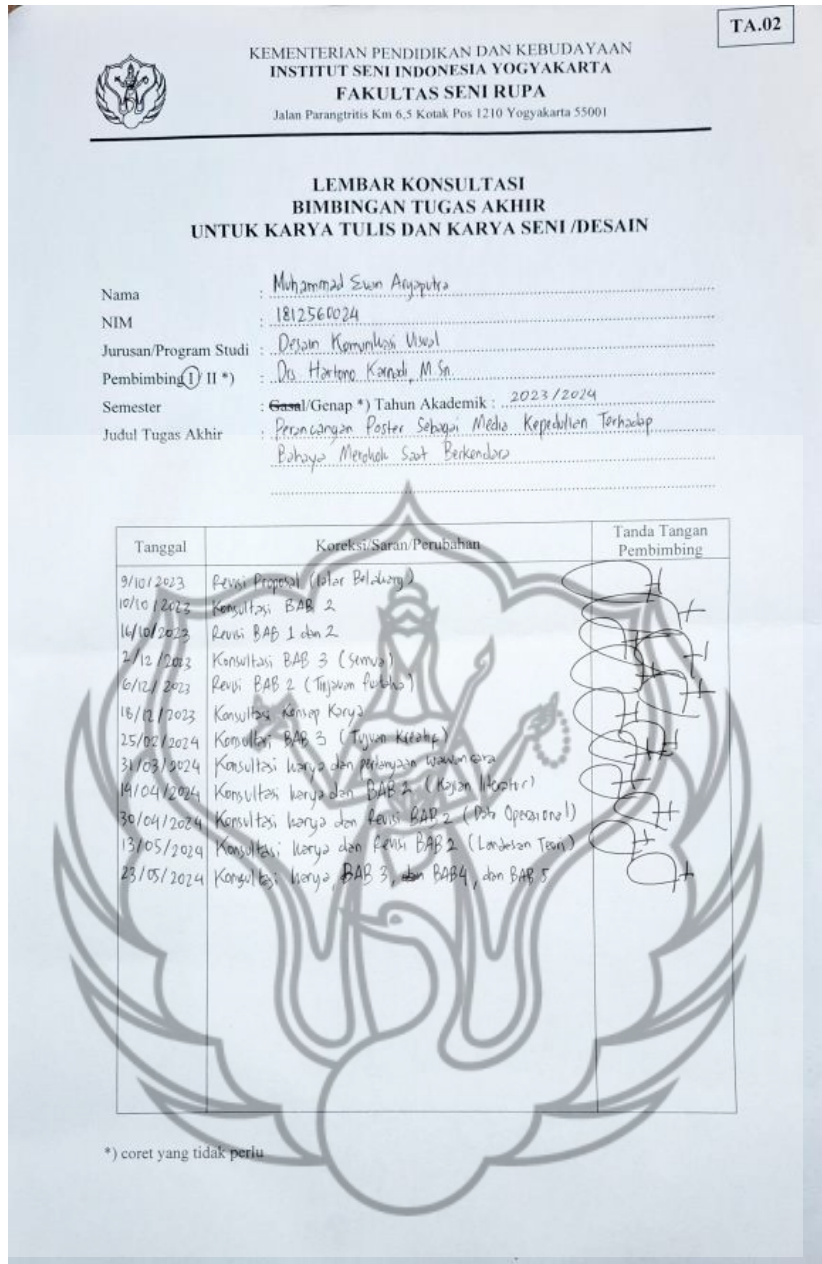 TA.02
KEMENTERIAN PENDIDIKAN DAN KEBUDAYAAN
INSTITUT SENI INDONESIA YOGYAKARTA
FAKULTAS SENI RUPA
Jalan Parangtritis Km 6,5 Kotak Pos 1210 Yogyakarta 55001
LEMBAR KONSULTASI
BIMBINGAN TUGAS AKHIR
UNTUK KARYA TULIS DAN KARYA SENI /DESAIN
Nama : Muhammad Ewin Aryaputra
NIM : 1812560024
Jurusan/Program Studi : Desain Komunikasi Visual
Pembimbing I / II *) : Drs Hartono Karnadi, M Sn.
Semester : Gasal/Genap *) Tahun Akademik : 2023/2024
Judul Tugas Akhir : Perancangan Poster Sebagai Media Kepedulian Terhadap
Bahaya Merokok Saat Berkendara
Tanggal Koreksi/Saran/Perubahan Tanda Tangan Pembimbing
9/10/2023 Revisi Proposal (latar Belakang)
10/10/2023 Konsultasi BAB 2
16/10/2023 Revisi BAB 1 dan 2
2/12/2023 Konsultasi BAB 3 (Semua)
6/12/2023 Revisi BAB 2 (Tinjauan Pustaka)
18/12/2023 Konsultasi Konsep Karya
25/02/2024 Konsultasi BAB 3 (Tujuan Kreatif)
31/03/2024 Konsultasi karya dan pertanyaan wawancara
19/04/2024 Konsultasi karya dan BAB 2 (Kajian literatur)
30/04/2024 Konsultasi karya dan Revisi BAB 2 (Data Operasional)
13/05/2024 Konsultasi karya dan Revisi BAB 2 (Landasan Teori)
23/05/2024 Konsultasi karya, BAB 3, dan BAB4, dan BAB 5
*) coret yang tidak perlu